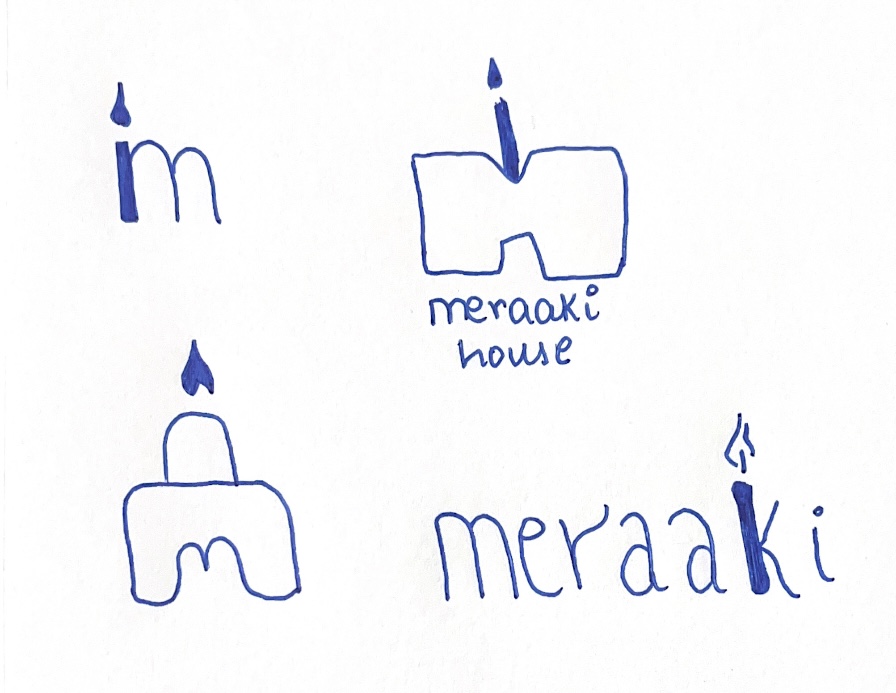 m
meraaki
house
m
meraaki